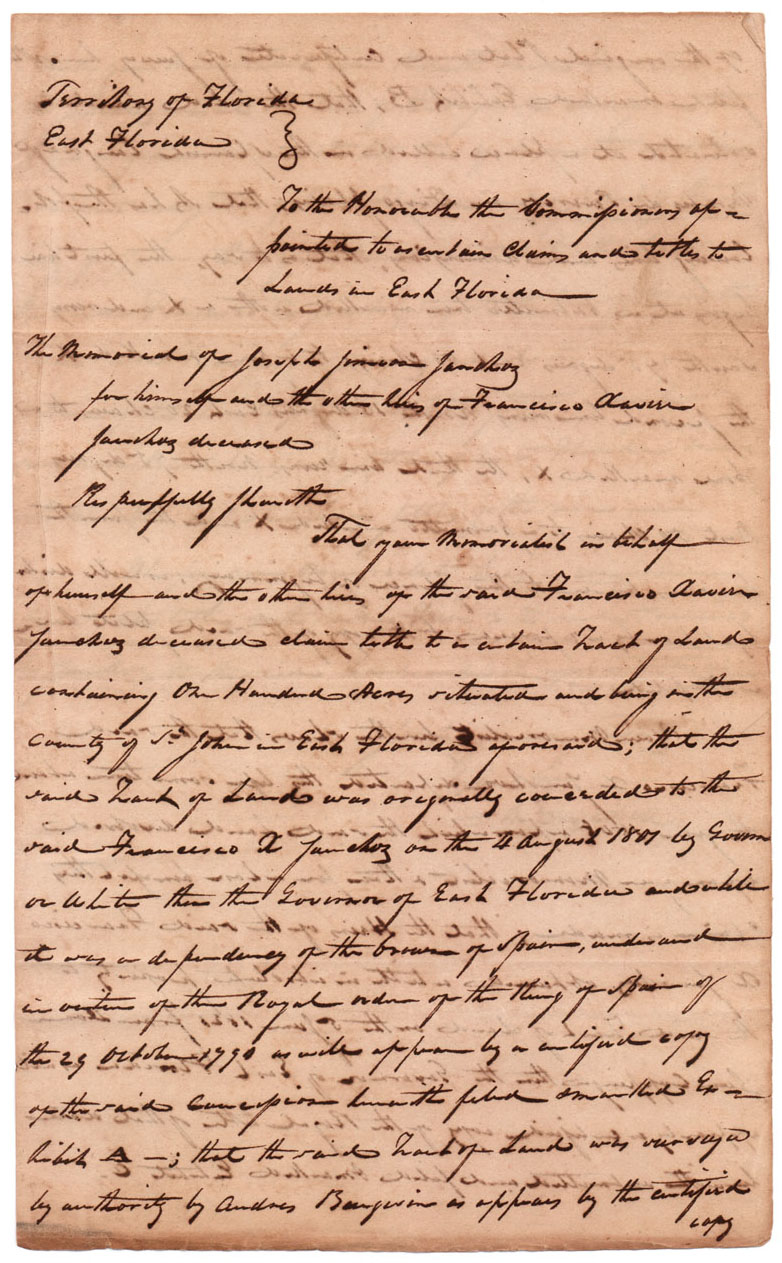 Territory of Florida
East Florida
To the Honorable the Commissioners ap=
pointed to ascertain Claims and titles to
Lands in East Florida
The Memorial of Joseph Simeon Sanchez
for himself and the other heirs of Francisco Xavier
Sanchez deceased
Respectfully Sheweth
That your Memorialist in behalf
of himself and the other heirs of the said Francisco Xavier
Sanchez deceased claim title to a certain Tract of Land
containing One Hundred Acres situated and being in the
County of St. John in East Florida aforesaid; that the
said Tract of Land was originally conceded to the
said Francisco X Sanchez on the 4 August 1801 by Govern
or White then the Governor of East Florida and while
it was a dependency of the Crown of Spain, under and
in virtue of the Royal order of the King of Spain of
the 29 October 1790 as will appear by a certified copy
of the said Concession herewith filed & marked Ex=
hibit A —; that the said Tract of Land was surveyed
by authority by Andres Burgevin as appears by the certified
copy